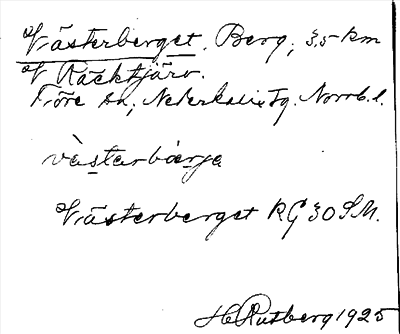 Västerberget. Berg, 3,5 km
V Räcktjärv.
Töre sn, Nederkalix Tg. Norrb. l.
västarbärjə
Västerberget RG 30 SM.
H Rutberg 1925